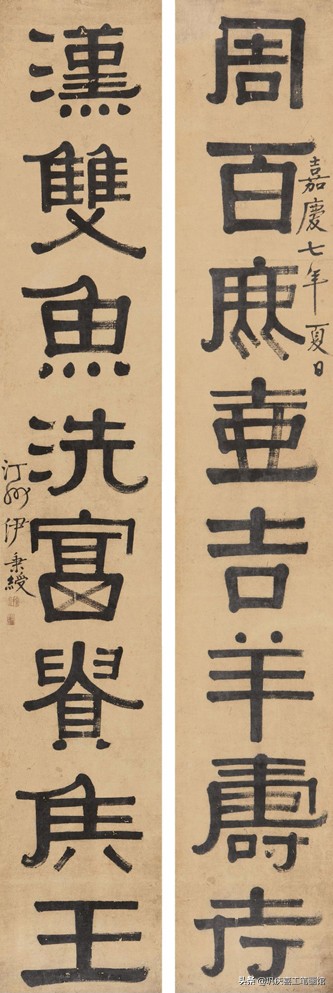 周百鹿壺吉羊壽考
嘉慶七年夏日
漢雙魚洗富貴侯王
汀州伊秉綬
头条